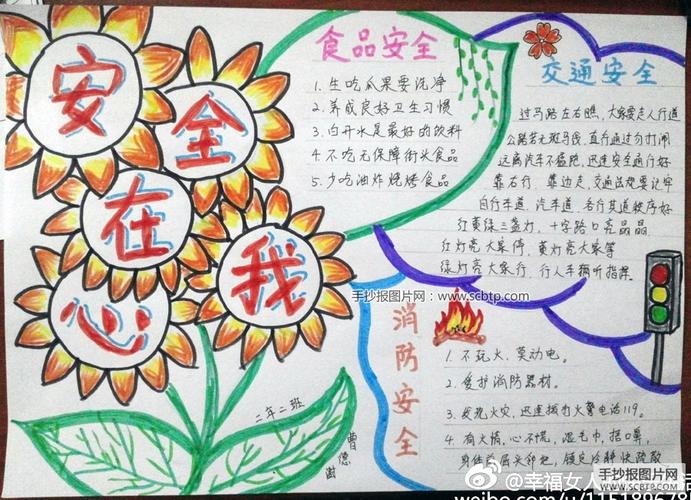 安
全
在
我
心
食品安全
1. 生吃瓜果要洗净
2. 养成良好卫生习惯
3. 白开水是最好的饮料
4. 不吃无保障街头食品
5. 少吃油炸烧烤食品
交通安全
过马路左右瞧，大家要走人行道
公路若无斑马线，直行通过勿打闹
远离汽车不猛跑，迅速安全通行好
靠右行，靠边走，交通法规要记牢
自行车道，汽车道，各行其道秩序好
红黄绿三盏灯，十字路口亮晶晶
红灯亮大家停，黄灯亮大家等
绿灯亮大家行，行人车辆听指挥
手抄报图片网：www.scbtp.com
消防安全
1. 不玩火、莫动电。
2. 爱护消防器材。
3. 发现火灾，迅速拨打火警电话119。
4. 有火情，心不慌，湿毛巾，捂口鼻，
镇定冷静快疏散
二年二班
曹德
@幸福女人
手抄报图片网
www.scbtp.com